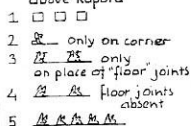 above Rapora
1
2 only on corner
3 only
on place of "floor" joints
4 floor joints
absent
5